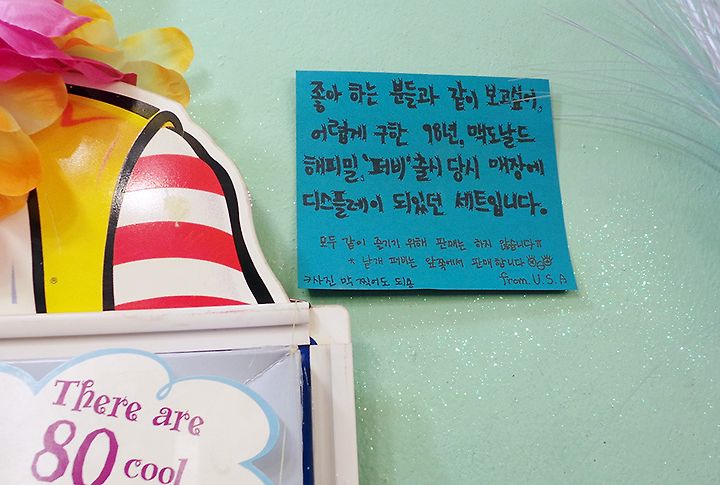 좋아 하는 분들과 같이 보고싶어,
어렵게 구한 98년, 맥도날드
해피밀, '퍼비' 출시 당시 매장에
디스플레이 되있던 세트입니다.
모두 같이 즐기기 위해 판매는 하지 않습니다ㅠ
* 낱개 퍼비는 앞쪽에서 판매합니다
사진 막 찍어도 되용
from. U.S.A
There are
80 cool